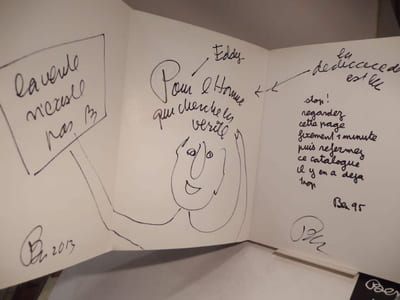 la verité
n'existe
pas. B
Ben 2013
Eddy
Pour l'Homme
qui cherche la
verité
la
dedicace
est là
stop!
regardez
cette page
fixement 1 minute
puis refermez
ce catalogue
il y en a deja
trop
Ben 95
Ben